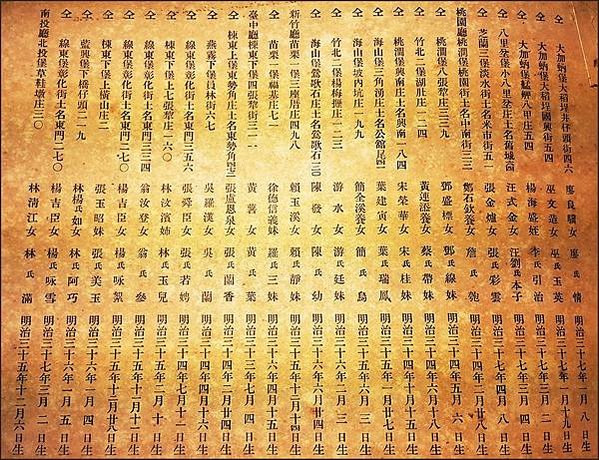 仝 大加蚋堡大稻埕井仔頭街四六 廖良驥女 廖氏情 明治三十七年一月十九日生
仝 大加蚋堡大稻埕國興街五四 巫文造女 巫氏玉英 明治三十七年三月二日生
仝 大加蚋堡艋舺八甲庄五四 楊海盛姪 李氏引治 明治三十七年四月
仝 八里坌堡小八里坌庄土名舊城 汪式金女 汪劉氏本子 明治三十七年 月八日生
仝 芝蘭三堡淡水街土名米市街五一 張金爐女 張氏彩雲 明治三十四年二月廿八日生
桃園廳桃澗堡桃園街土名中南街二三 鄭石欽養女 詹氏匏 明治三十七年 月 日生
仝 桃澗堡八張犂庄三 鄧盛標女 鄧氏線妹 明治三十四年五月六日生
仝 竹北二堡湖肚庄一二四 黃連添養女 蔡氏帶妹 明治三十四年六月十八日生
仝 桃澗堡興南庄土名興南一八四 宋榮華女 宋氏桂妹 明治三十四年 月十五日生
仝 海山堡三角湧庄土名公館尾 葉建寅女 葉氏瑞鳳 明治三十五年二月廿七日生
仝 海山堡坡內坑庄一九九 簡全溪養女 簡氏鳥 明治三十五年六月三日生
仝 竹北二堡楊梅壢庄二三 游水女 游氏廷妹 明治三十五年八月 日生
仝 海山堡鶯歌石庄土名鶯歌石 陳發女 陳氏幼 明治三十六年六月廿四日生
新竹廳竹南一堡三座厝庄四九八 賴玉溪女 賴氏靜妹 明治三十四年
仝 苗栗一堡福基庄七一 徐德信義妹 羅氏三妹 明治三十四年四月十五日生
臺中廳棟東下堡四張犂街三二一 黃蓍女 黃氏葉 明治三十三年七月四日生
仝 棟東上堡東勢角庄土名東勢角 張盧恩泉女 張氏蘭香 明治三十四年二月廿四日生
仝 燕霧下堡員林街六七 吳羅漢女 吳氏蘭 明治三十四年四月十六日生
仝 線東堡彰化街土名東門三五六 張舜臣女 張氏若娉 明治三十四年十二月十四日生
仝 棟東下堡上七張犂庄一六〇 林汝濱姊 林氏玉兒 明治三十五年二月十一日生
仝 線東堡彰化街土名東門三三四 翁汝登女 翁氏參 明治三十五年十月十一日生
仝 線東堡彰化街土名東門二七〇 楊吉臣女 楊氏咏絮 明治三十五年十二月廿八日生
仝 棟東上堡上橫山庄二 張玉昭妹 張氏美玉 明治三十六年二月四日生
仝 藍興堡下橋仔頭一一九 林楊氏如女 林氏阿巧 明治三十六年二月五日生
仝 線東堡彰化街土名東門二七〇 楊吉臣女 楊氏咏雪 明治三十七年三月二日生
南投廳北投堡草鞋墩庄三〇 林清江女 林氏滿 明治三十五年十二月六日生